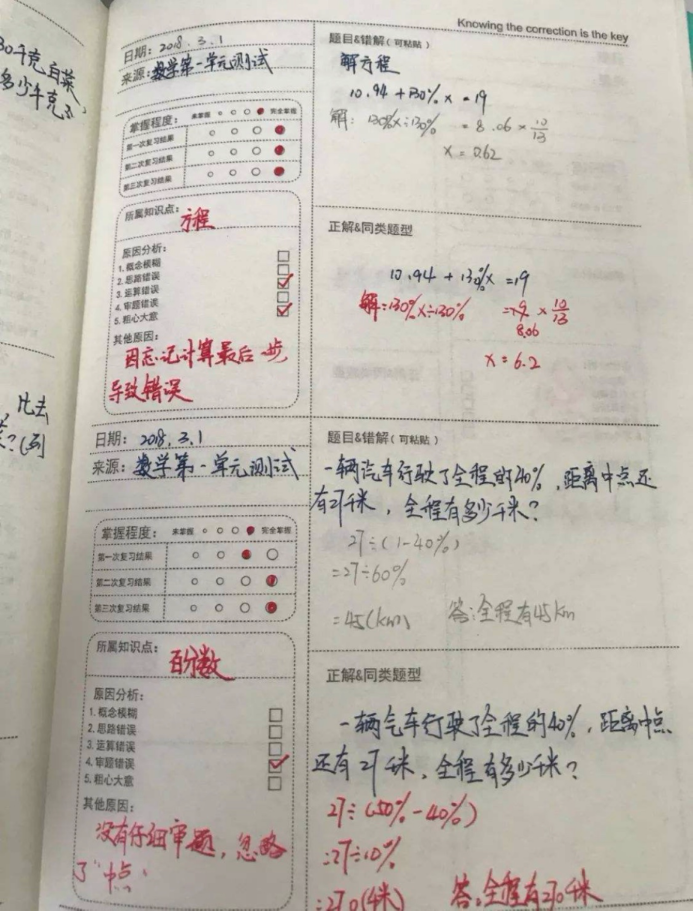 Knowing the correction is the key
日期: 2018.3.1
来源: 数学第一单元测试
掌握程度: 未掌握 完全掌握
第一次复习结果
第二次复习结果
第三次复习结果
所属知识点: 方程
原因分析:
1. 概念模糊
2. 思路错误
3. 运算错误
4. 审题错误
5. 粗心大意
其他原因:
因忘记计算最后一步
导致错误
题目&错解(可粘贴)
解方程
10.94+130%x=19
解: 130%x÷130% =8.06×10/13
x=0.62
正解&同类题型
10.94+130%x=19
解:130%x÷130% = × 10/13
8.06
x=6.2
日期: 2018.3.1
来源: 数学第一单元测试
掌握程度: 未掌握 完全掌握
第一次复习结果
第二次复习结果
第三次复习结果
所属知识点: 百分数
原因分析:
1. 概念模糊
2. 思路错误
3. 运算错误
4. 审题错误
5. 粗心大意
其他原因:
没有仔细审题,忽略
了"中点"
题目&错解(可粘贴)
一辆汽车行驶了全程的40%,距离中点还
有27千米,全程有多少千米?
27÷(1-40%)
=27÷60%
=45(km) 答:全程有45km
正解&同类题型
一辆汽车行驶了全程的40%,距离中点
还有27千米,全程有多少千米?
27÷(50%-40%)
=27÷10%
=270(千米) 答:全程有270千米
30千克白菜,
多少千克
比去